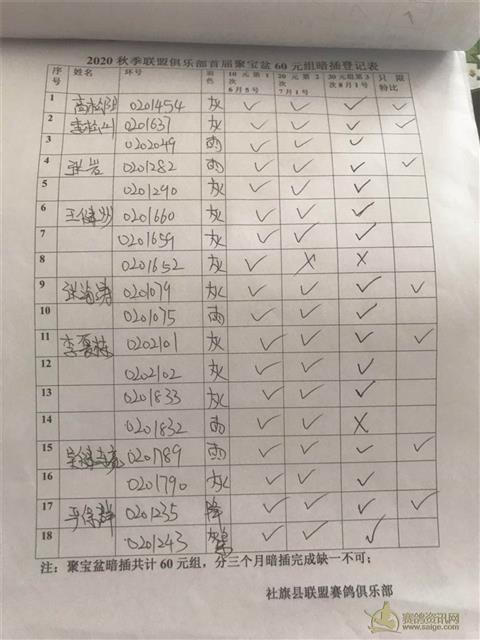 2020 秋季联盟俱乐部首届聚宝盆 60 元组暗插登记表
序号 姓名 环号 羽色 10 元第 1 次 6 月 5 号 20 元第 2 次 7 月 1 号 30 元第 3 次 8 月 1 号 只限特比
1 0201454 灰 ✓ ✓ ✓ ✓
2 李松山 0201637 灰 ✓ ✓ ✓ ✓
3 0202049 雨 ✓ ✓ ✓
4 张岩 0201282 雨 ✓ ✓ ✓ ✓
5 0201290 灰 ✓ ✓ ✓
6 0201660 灰 ✓ ✓ ✓
7 0201659 灰 ✓ ✓ ✓
8 0201652 灰 ✓ X X
9 0201079 灰 ✓ ✓ ✓ ✓
10 0201075 雨 ✓ ✓ ✓
11 0202101 灰 ✓ ✓ ✓ ✓
12 0202102 灰 ✓ ✓ ✓
13 0201833 灰 ✓ ✓ ✓
14 0201832 雨 ✓ ✓ X
15 0201789 雨 ✓ ✓ ✓ ✓
16 0201790 灰 ✓ ✓ ✓
17 平保群 0201235 绛 ✓ ✓ ✓ ✓
18 0201243 ✓ ✓ ✓
注：聚宝盆暗插共计 60 元组，分三个月暗插完成缺一不可；
社旗县联盟赛鸽俱乐部
赛鸽资讯网
www.saige.com